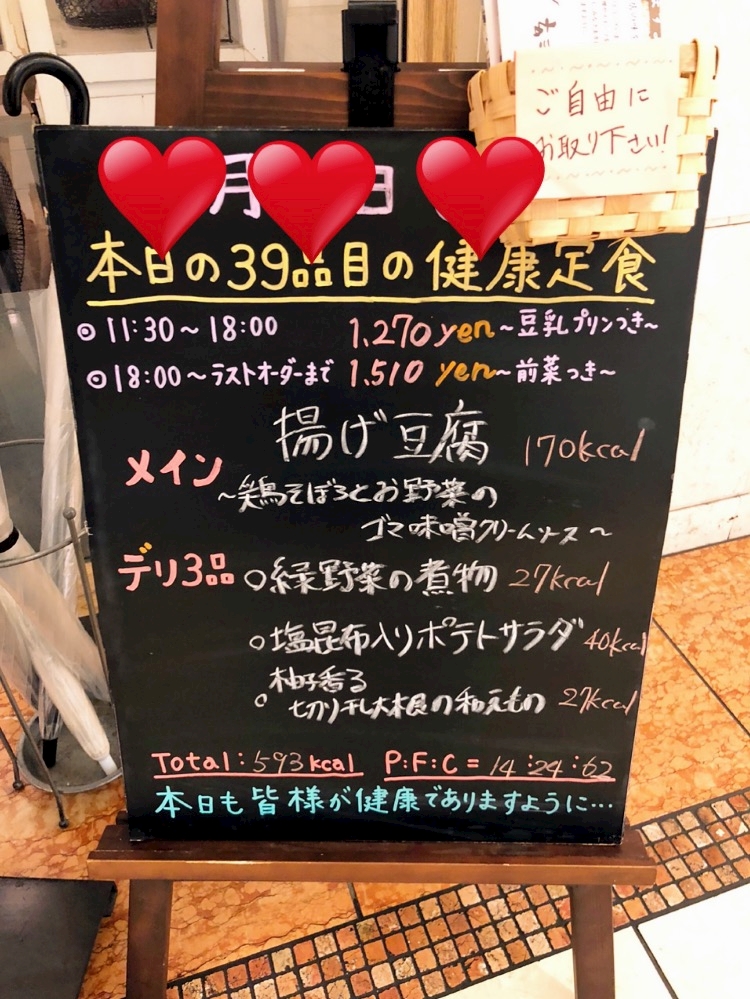 ご自由に
お取り下さい!
月 日
本日の39品目の健康定食
◎11:30~18:00 1,270yen~豆乳プリンつき~
◎18:00~ラストオーダーまで 1,510yen~前菜つき~
メイン 揚げ豆腐 170kcal
~鶏そぼろとお野菜の
ゴマ味噌クリームソース~
デリ3品 ○緑野菜の煮物 27kcal
○塩昆布入りポテトサラダ 40kcal
○柚子香る
切り干し大根の和えもの 27kcal
Total:593kcal P:F:C=14:24:62
本日も皆様が健康でありますように…